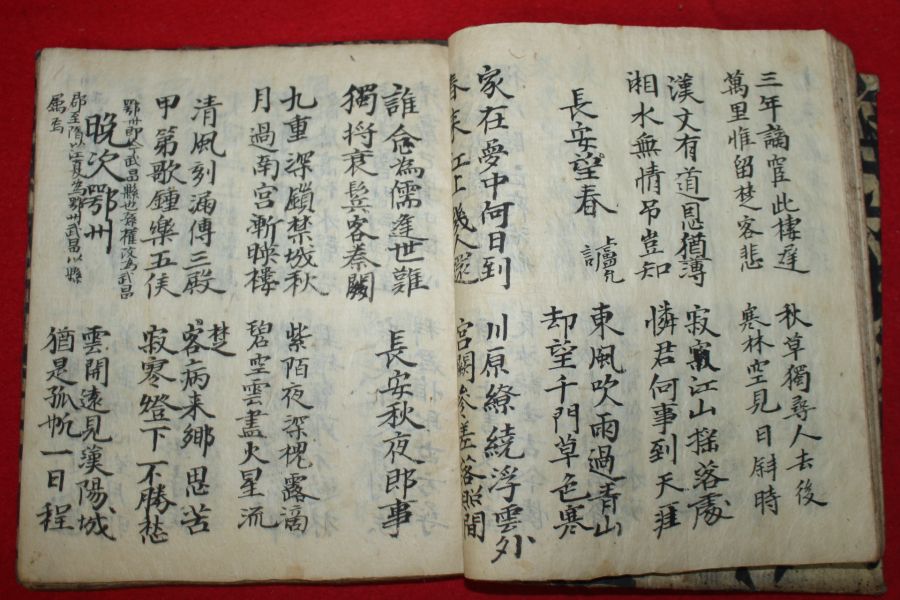 三年謫宦此棲遲
萬里惟留楚客悲
秋草獨尋人去後
寒林空見日斜時
漢文有道恩猶薄
湘水無情吊豈知
寂江山搖落處
憐君何事到天涯
長安望春
東風吹雨過青山
却望千門草色寒
家在夢中何日到
春來江上幾人還
川原繚繞浮雲外
宮闕參差落照間
誰念為儒逢世難
獨將衰鬂客秦關
長安秋夜郎事
九重深鎖禁城秋
月過南宮漸映樓
紫陌夜深槐露滴
碧空雲盡火星流
清風刻漏傳三殿
甲第歌鍾樂五侯
楚客病来鄉思苦
寂寥燈下不勝愁
晚次鄂州
鄂州即今武昌縣也孫權改為武昌
郡至隋以江夏為鄂州武昌以縣
屬焉
雲開遠見漢陽城
猶是孤帆一日程